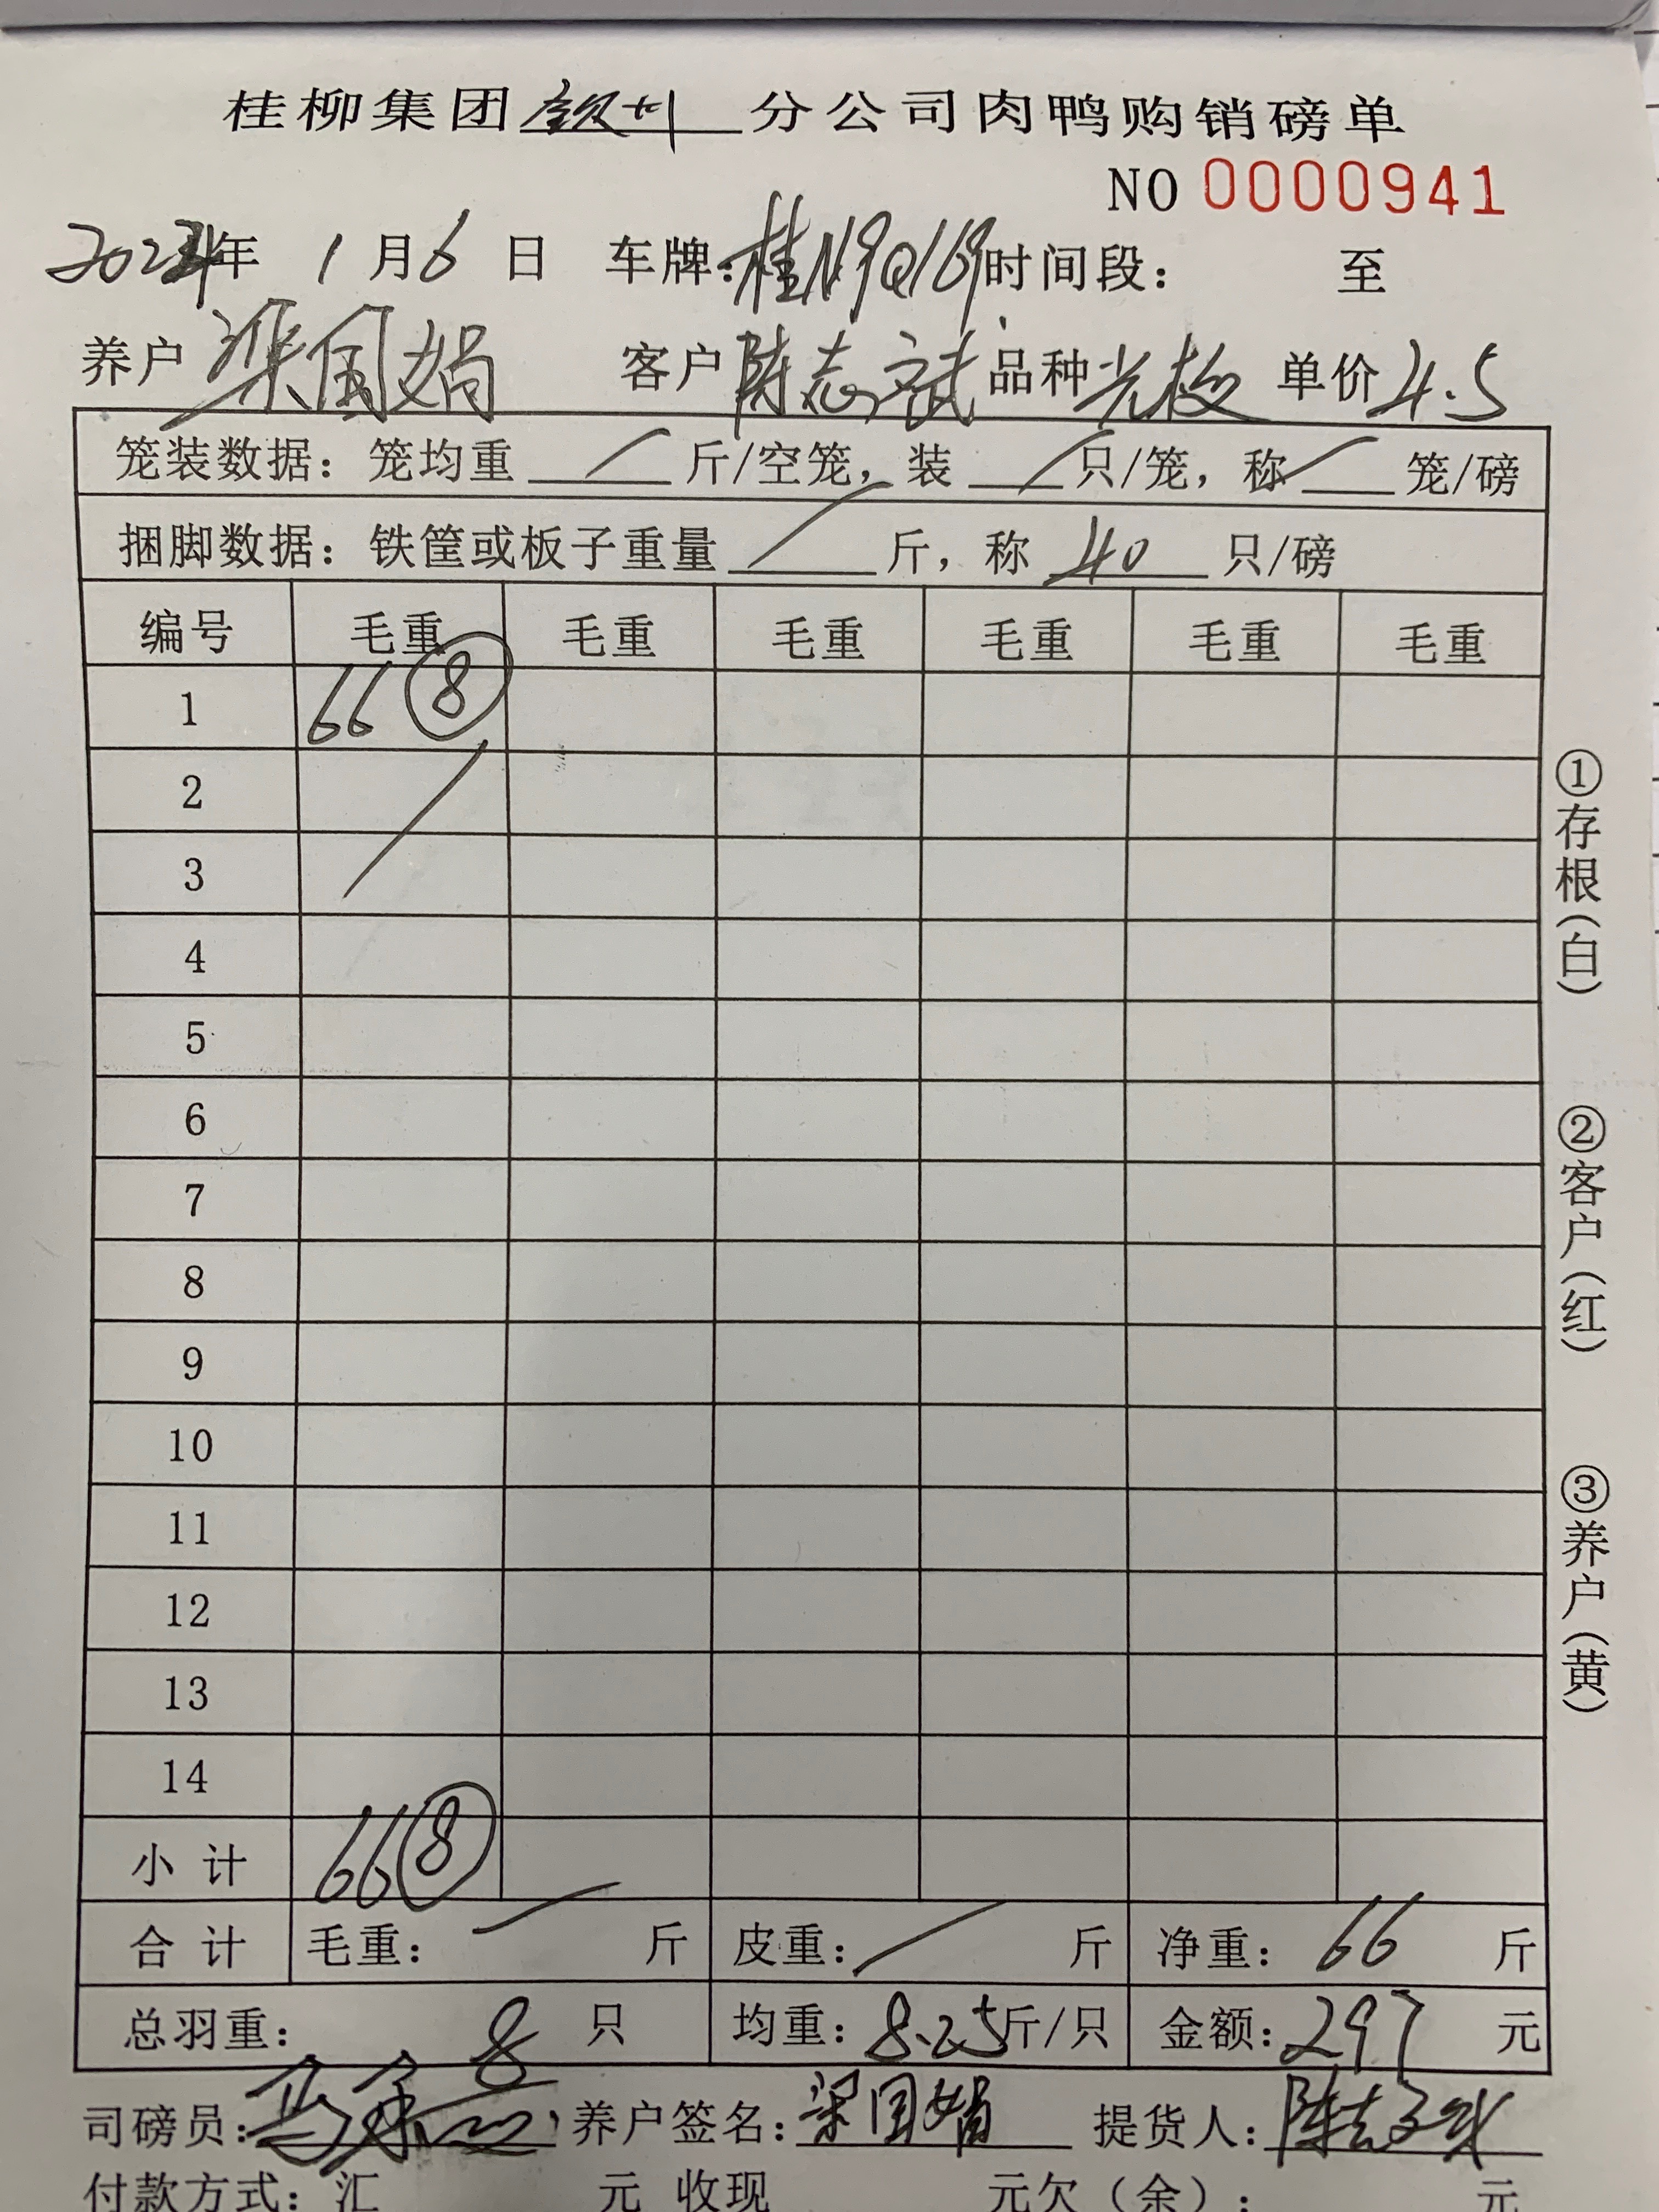 桂柳集团钦州分公司肉鸭购销磅单
NO 0000941
年 1月6日 车牌:桂N9Q169 时间段: 至
养户 梁国娟 客户 陈志斌 品种 单价 4.5
笼装数据: 笼均重 / 斤/空笼, 装 / 只/笼, 称 / 笼/磅
捆脚数据: 铁筐或板子重量 / 斤, 称 40 只/磅
编号 毛重 毛重 毛重 毛重 毛重 毛重
1 66 ⑧
2
3
4
5
6
7
8
9
10
11
12
13
14
小计 66 ⑧
合计 毛重: 斤 皮重: / 斤 净重: 66 斤
总羽重: 8 只 均重: 8.25 斤/只 金额: 297 元
司磅员: 养户签名: 梁国娟 提货人: 陈志斌
付款方式: 汇 元 收现 元欠(余): 元
①存根(白)
②客户(红)
③养户(黄)